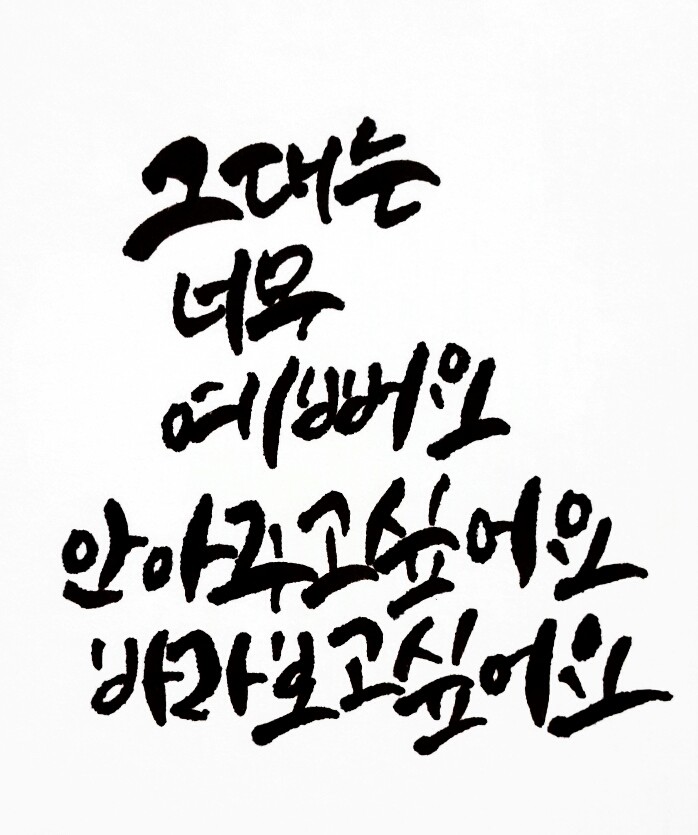 그대는
너무
예뻐요
안아주고싶어요
바라보고싶어요